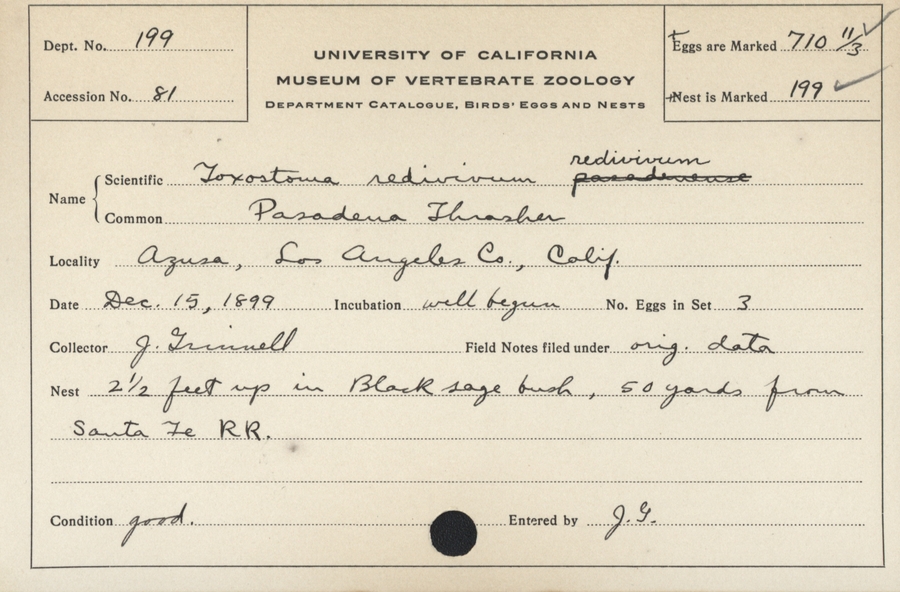 Dept. No. 199
Accession No. 81
UNIVERSITY OF CALIFORNIA
MUSEUM OF VERTEBRATE ZOOLOGY
DEPARTMENT CATALOGUE, BIRDS' EGGS AND NESTS
Eggs are Marked 710 11/3
Nest is Marked 199
redivivum
Name Scientific Toxostoma redivivum pasadenense
Common Pasadena Thrasher
Locality Azusa, Los Angeles Co., Calif.
Date Dec. 15, 1899 Incubation well begun No. Eggs in Set 3
Collector J. Grinnell Field Notes filed under orig. data
Nest 2 1/2 feet up in Black sage bush, 50 yards from
Santa Fe RR.
Condition good. Entered by J.G.